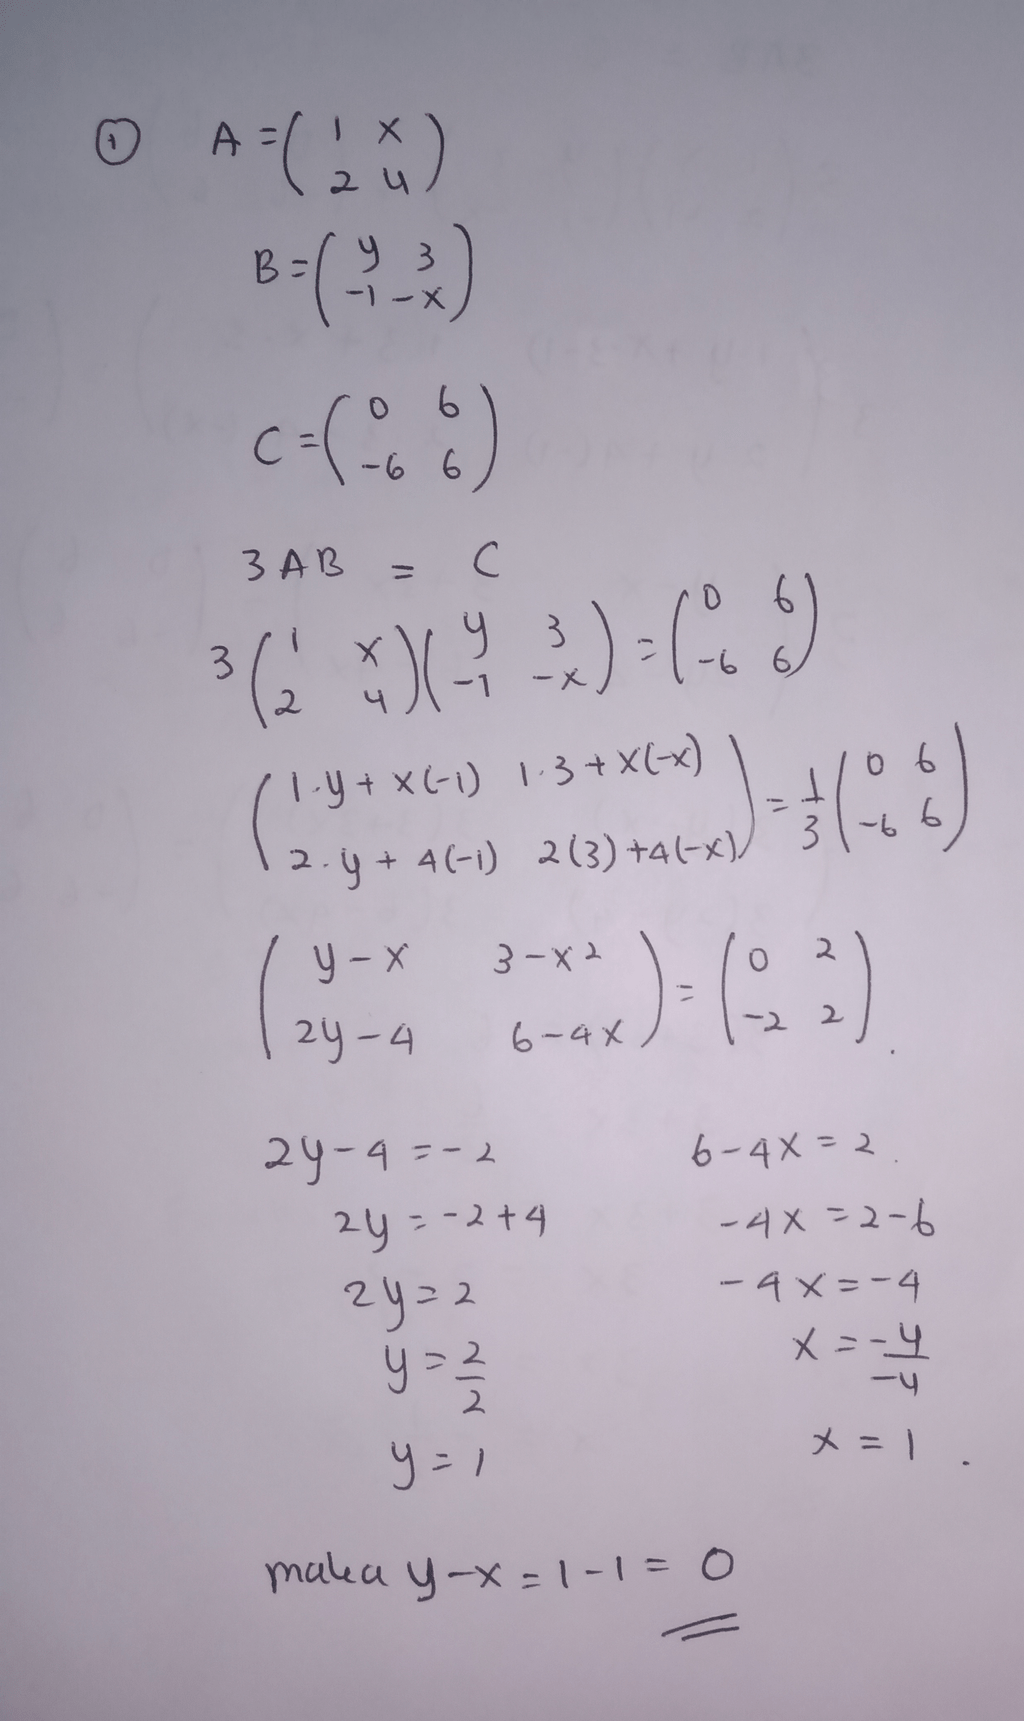 ① A = ( 1 x
2 4 )
B = ( y 3
-1 -x )
C = ( 0 6
-6 6 )
3AB = C
3 ( 1 x
2 4 ) ( y 3
-1 -x ) = ( 0 6
-6 6 )
( 1.y + x(-1) 1.3 + x(-x)
2.y + 4(-1) 2(3) + 4(-x) ) = 1/3 ( 0 6
-6 6 )
( y-x 3-x²
2y-4 6-4x ) = ( 0 2
-2 2 ).
2y-4 = -2 6-4x = 2.
2y = -2+4 -4x = 2-6
2y = 2 -4x = -4
y = 2/2 x = -4/-4
y = 1 x = 1.
maka y-x = 1-1 = 0